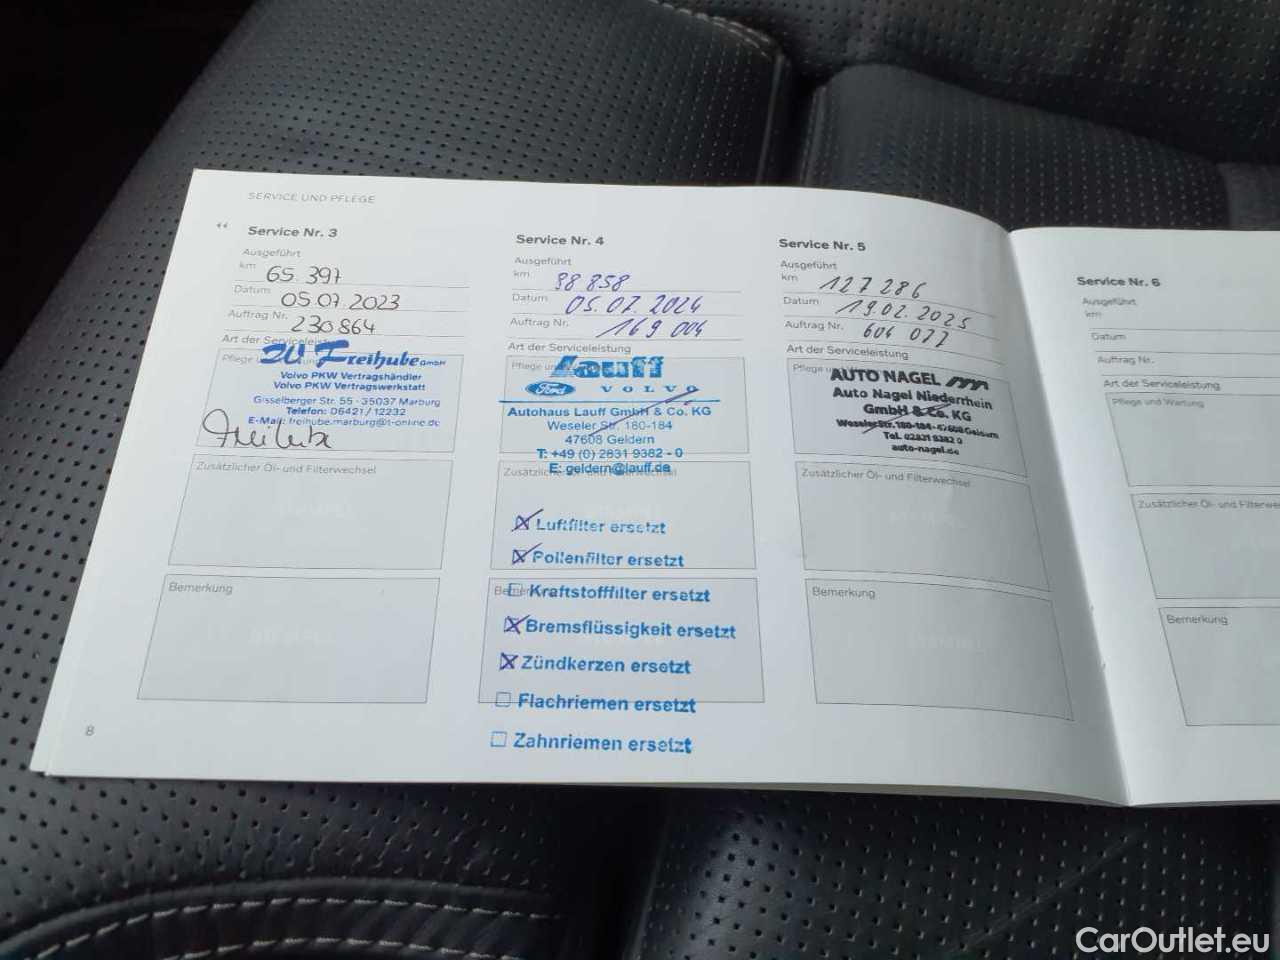 SERVICE UND PFLEGE
Service Nr. 3
Ausgeführt
km 65.397
Datum 05.07.2023
Auftrag Nr. 230864
Art der Serviceleistung
Freihube GmbH
Volvo PKW Vertragshändler
Volvo PKW Vertragswerkstatt
Gisselberger Str. 55 · 35037 Marburg
Telefon: 06421 / 12232
E-Mail: freihube.marburg@t-online.de
Zusätzlicher Öl- und Filterwechsel
Bemerkung
8
Service Nr. 4
Ausgeführt
km 88 858
Datum 05.07.2024
Auftrag Nr. 169 004
Art der Serviceleistung
Lauff
Ford VOLVO
Autohaus Lauff GmbH & Co. KG
Weseler Str. 180-184
47608 Geldern
T: +49 (0) 2831 9382 - 0
E: geldern@lauff.de
Luftfilter ersetzt
Pollenfilter ersetzt
Kraftstofffilter ersetzt
Bremsflüssigkeit ersetzt
Zündkerzen ersetzt
Flachriemen ersetzt
Zahnriemen ersetzt
Service Nr. 5
Ausgeführt
km 127 286
Datum 19.02.2025
Auftrag Nr. 604 077
Art der Serviceleistung
AUTO NAGEL
Auto Nagel Niederrhein
GmbH & Co. KG
Weseler Str. 180-184 · 47608 Geldern
Tel. 02831 9382 0
auto-nagel.de
Zusätzlicher Öl- und Filterwechsel
Bemerkung
Service Nr. 6
Ausgeführt
km
Datum
Auftrag Nr.
Art der Serviceleistung
Pflege und Wartung
Zusätzlicher Öl- und Filterwechse
Bemerkung
CarOutlet.eu